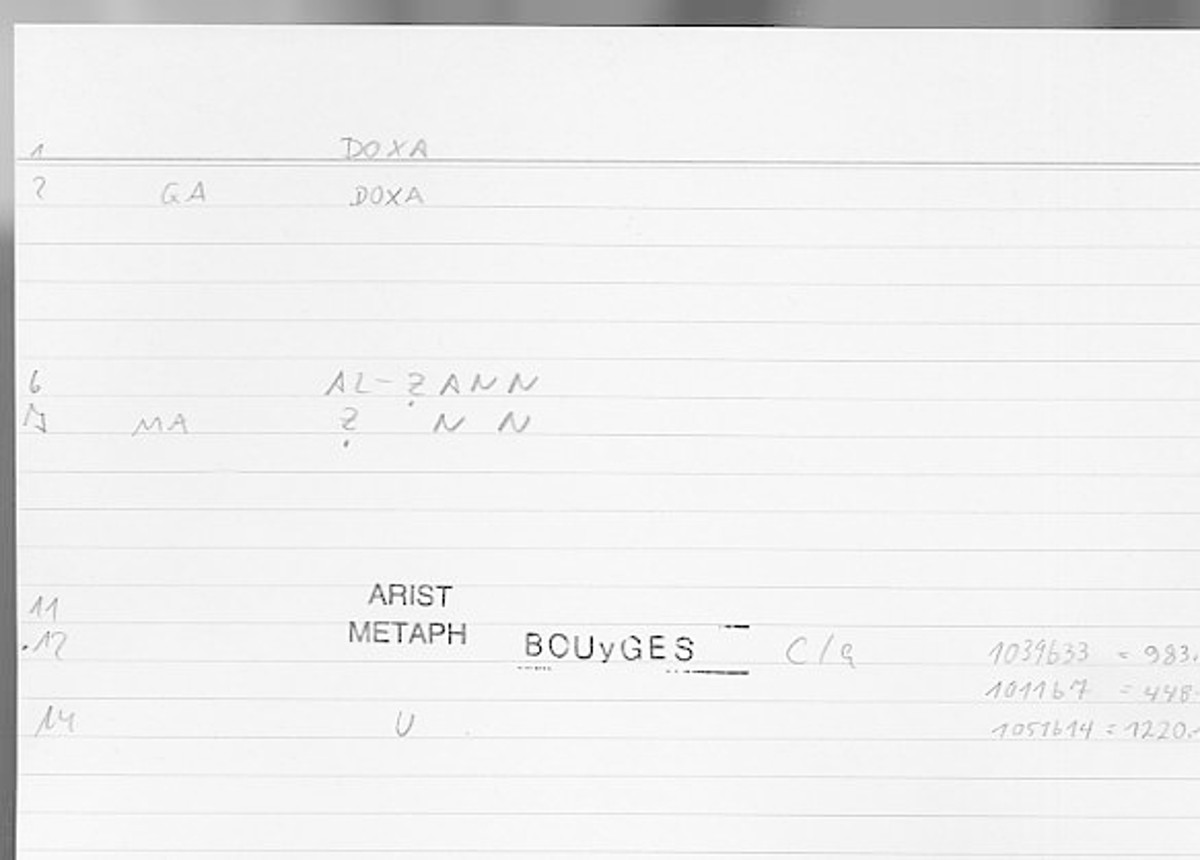 1 DOXA
2 GA DOXA
6 AL-ẒANN
7 MA Ẓ N N
11 ARIST
.12 METAPH BOUyGES C/q 1039b33 = 983.
1011b7 = 448.
14 U 1051b14 = 1220.